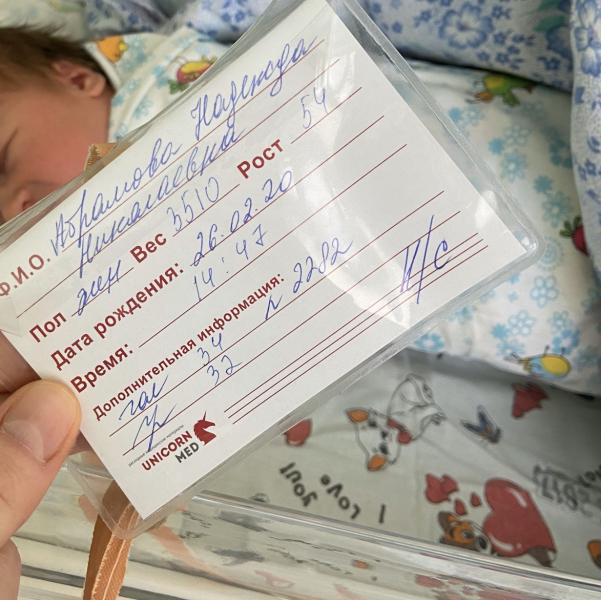 Ф.И.О. Абрамова Надежда
Николаевна
Пол жен Вес 3510 Рост 54
Дата рождения: 26.02.20
Время: 14:47
Дополнительная информация:
гол 34 № 2282
гр 32 Щ/с
UNICORN
MED
I Love
You!